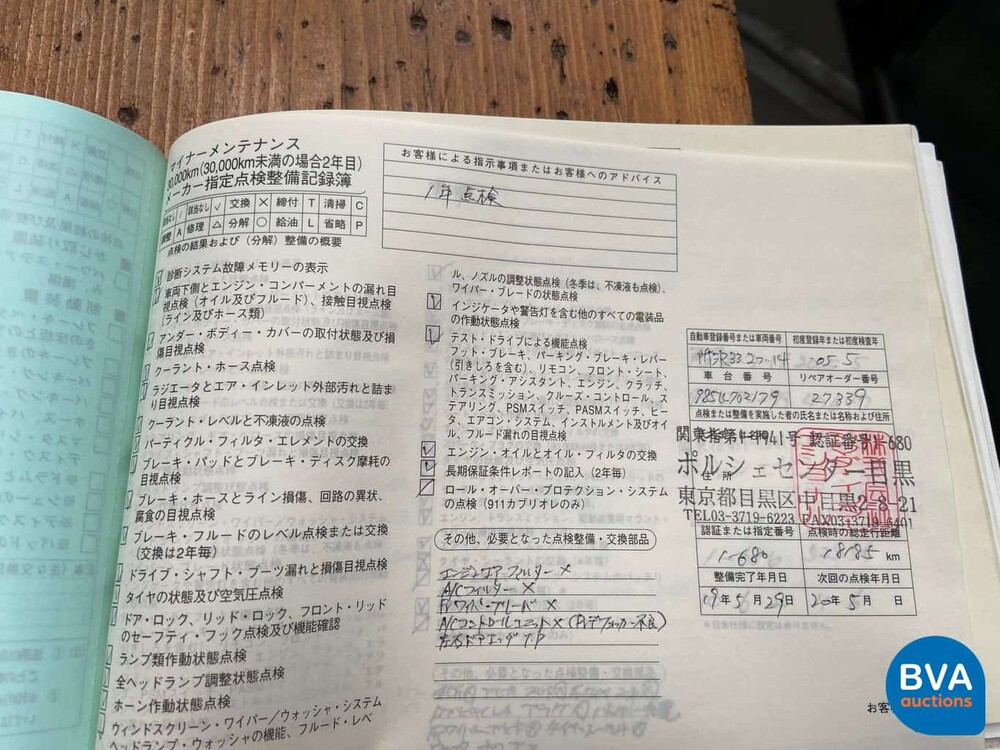 マイナーメンテナンス
30,000km(30,000km未満の場合2年目)
メーカー指定点検整備記録簿
該当なし / 交換 × 締付 T 清掃 C
調整 A 修理 △ 分解 ○ 給油 L 省略 P
点検の結果および(分解)整備の概要
診断システム故障メモリーの表示
車両下側とエンジン・コンパーメントの漏れ目
視点検(オイル及びフルード)、接触目視点検
(ライン及びホース類)
アンダー・ボディー・カバーの取付状態及び損
傷目視点検
クーラント・ホース点検
ラジエータとエア・インレット外部汚れと詰ま
り目視点検
クーラント・レベルと不凍液の点検
パーティクル・フィルタ・エレメントの交換
ブレーキ・パッドとブレーキ・ディスク摩耗の
目視点検
ブレーキ・ホースとライン損傷、回路の異状、
腐食の目視点検
ブレーキ・フルードのレベル点検または交換
(交換は2年毎)
ドライブ・シャフト・ブーツ漏れと損傷目視点検
タイヤの状態及び空気圧点検
ドア・ロック、リッド・ロック、フロント・リッド
のセーフティ・フック点検及び機能確認
ランプ類作動状態点検
全ヘッドランプ調整状態点検
ホーン作動状態点検
ウィンドスクリーン・ワイパー/ウォッシャ・システム
ヘッドランプ・ウォッシャの機能、フルード・レベ
お客様による指示事項またはお客様へのアドバイス
1年点検
ル、ノズルの調整状態点検(冬季は、不凍液も点検)、
ワイパー・ブレードの状態点検
インジケータや警告灯を含む他のすべての電装品
の作動状態点検
テスト・ドライブによる機能点検
フット・ブレーキ、パーキング・ブレーキ・レバー
(引きしろを含む)、リモコン、フロント・シート、
パーキング・アシスタント、エンジン、クラッチ、
トランスミッション、クルーズ・コントロール、ス
テアリング、PSMスイッチ、PASMスイッチ、ヒー
タ、エアコン・システム、インストルメント及びオイ
ル、フルード漏れの目視点検
エンジン・オイルとオイル・フィルタの交換
長期保証条件レポートの記入(2年毎)
ロール・オーバー・プロテクション・システム
の点検(911カブリオレのみ)
その他、必要となった点検整備・交換部品
エンジンエアフィルター ×
A/Cフィルター ×
Frワイパーブレード ×
A/Cコントロールユニット ×
左右ドアエッヂ
その他、必要となった点検整備・交換部品
自動車登録番号または車両番号 初度登録年または初度検査年
車台番号 リペアオーダー番号
98SL762179 27339
点検または整備を実施した者の氏名または名称および住所
認証番号 680
ポルシェセンター目黒
東京都目黒区中目黒2-8-21
TEL03-3719-6223 FAX03-3719-6401
認証または指定番号 点検時の総走行距離
11-680 18185 km
整備完了年月日 次回の点検年月日
19年 5月 29日 20年 5月 日
*日本仕様に設定はありません。
お客
BVA
auctions